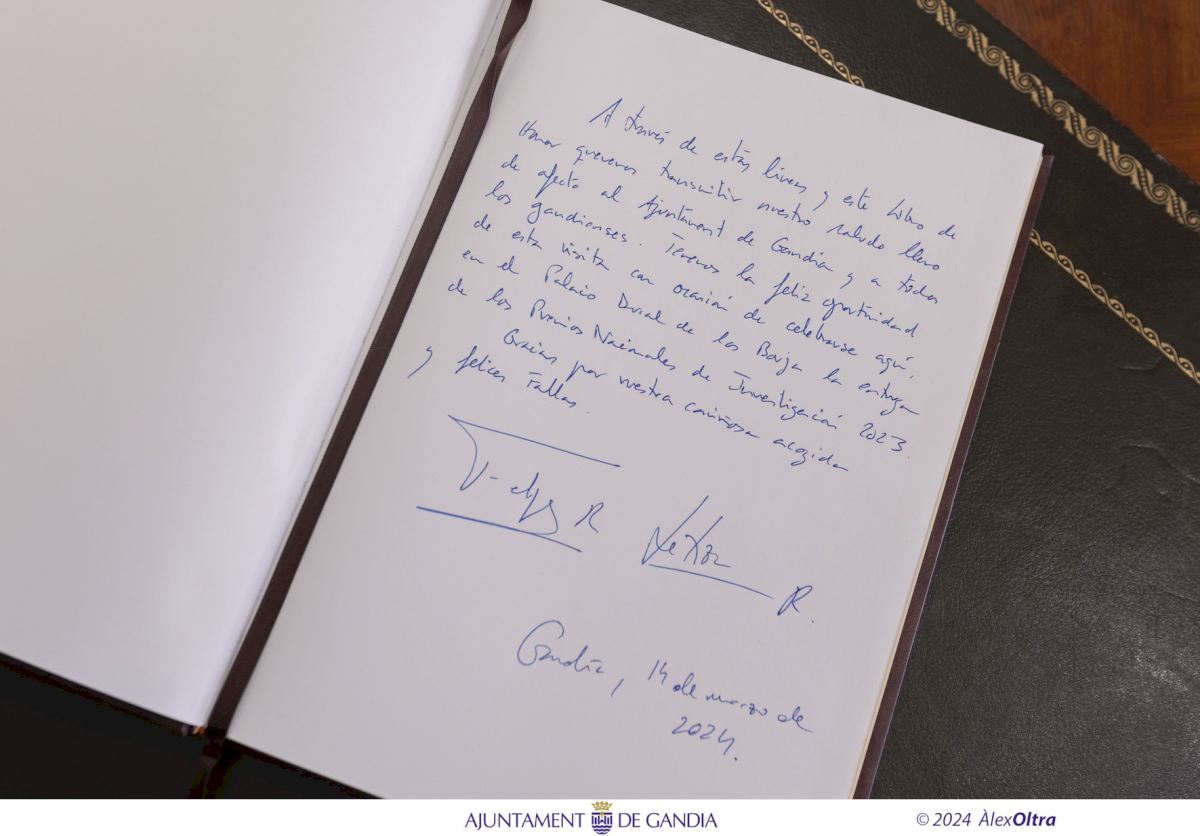 A través de estas líneas y este Libro de
Honor queremos transmitir nuestro saludo lleno
de afecto al Ajuntament de Gandía y a todos
los gandienses. Tenemos la feliz oportunidad
de esta visita con ocasión de celebrarse aquí,
en el Palacio Ducal de los Borja la entrega
de los Premios Nacionales de Investigación 2023.
Gracias por vuestra cariñosa acogida
y felices Fallas.
R
Letizia
R.
Gandía, 14 de marzo de
2024.
AJUNTAMENT DE GANDIA
© 2024 ÀlexOltra